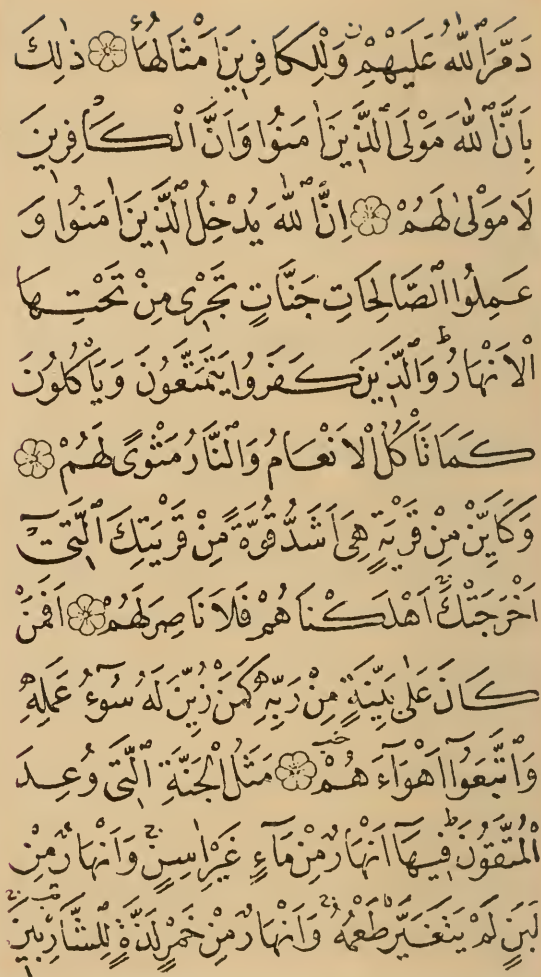 دَمَّرَ ٱللّٰهُ عَلَيْهِمْ ۖ وَلِلْكَافِرِينَ اَمْثَالُهَا ۝ ذٰلِكَ
بِاَنَّ ٱللّٰهَ مَوْلَى ٱلَّذِينَ اٰمَنُوا وَاَنَّ الْكَافِرِينَ
لَا مَوْلٰى لَهُمْ ۝ اِنَّ ٱللّٰهَ يُدْخِلُ ٱلَّذِينَ اٰمَنُوا وَ
عَمِلُوا ٱلصَّالِحَاتِ جَنَّاتٍ تَجْرِى مِنْ تَحْتِهَا
الْاَنْهَارُ ۗ وَالَّذِينَ كَفَرُوا يَتَمَتَّعُونَ وَيَاْكُلُونَ
كَمَا تَاْكُلُ الْاَنْعَامُ وَالنَّارُ مَثْوًى لَهُمْ ۝
وَكَاَيِّنْ مِنْ قَرْيَةٍ هِىَ اَشَدُّ قُوَّةً مِنْ قَرْيَتِكَ ٱلَّتِىٓ
اَخْرَجَتْكَ ۚ اَهْلَكْنَاهُمْ فَلَا نَاصِرَ لَهُمْ ۝ اَفَمَنْ
كَانَ عَلٰى بَيِّنَةٍ مِنْ رَبِّهٖ كَمَنْ زُيِّنَ لَهُ سُوٓءُ عَمَلِهٖ
وَاتَّبَعُوٓا اَهْوَآءَهُمْ ۝ مَثَلُ الْجَنَّةِ الَّتِى وُعِدَ
الْمُتَّقُونَ ۗ فِيهَآ اَنْهَارٌ مِنْ مَآءٍ غَيْرِ اٰسِنٍ ۚ وَاَنْهَارٌ مِنْ
لَبَنٍ لَمْ يَتَغَيَّرْ طَعْمُهُ ۚ وَاَنْهَارٌ مِنْ خَمْرٍ لَذَّةٍ لِلشَّارِبِينَ ۚ